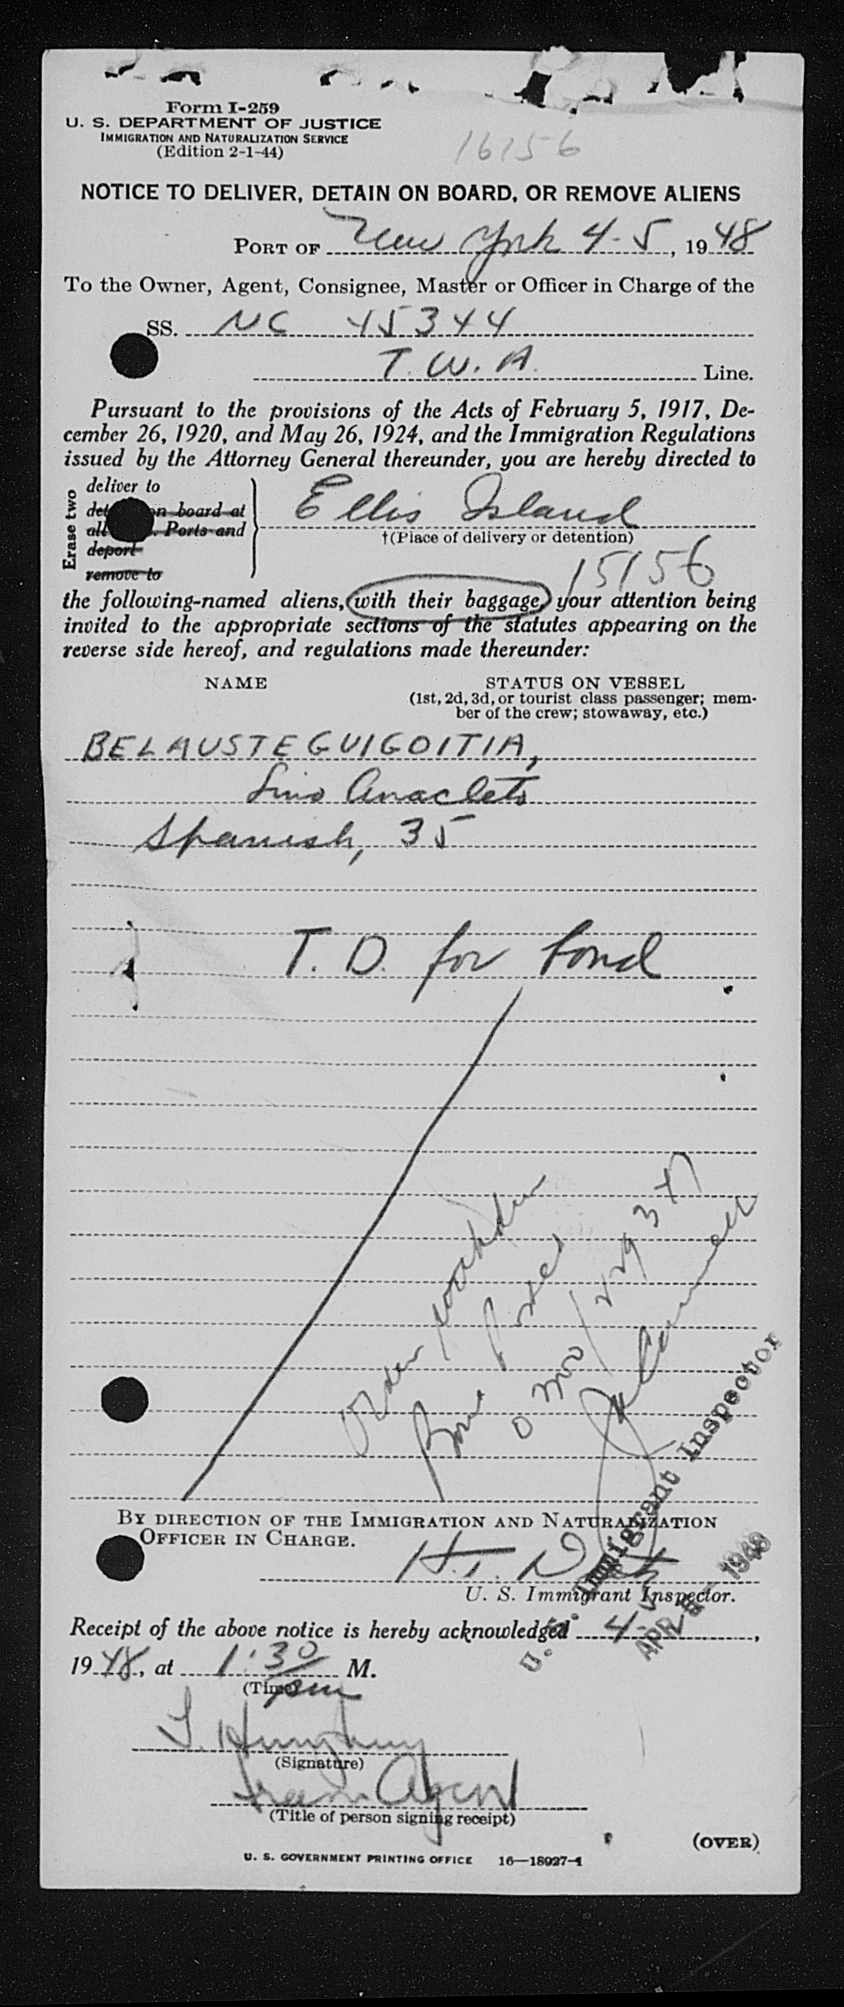 Form I-259
U. S. DEPARTMENT OF JUSTICE
IMMIGRATION AND NATURALIZATION SERVICE
(Edition 2-1-44)
16156
NOTICE TO DELIVER, DETAIN ON BOARD, OR REMOVE ALIENS
PORT OF New York 4-5, 1948
To the Owner, Agent, Consignee, Master or Officer in Charge of the
SS. NC 45344
T.W.A. Line.
Pursuant to the provisions of the Acts of February 5, 1917, De-
cember 26, 1920, and May 26, 1924, and the Immigration Regulations
issued by the Attorney General thereunder, you are hereby directed to
Erase two
deliver to
on board at
all Ports and
deport
remove to
Ellis Island
†(Place of delivery or detention)
15156
the following-named aliens, (with their baggage) your attention being
invited to the appropriate sections of the statutes appearing on the
reverse side hereof, and regulations made thereunder:
NAME STATUS ON VESSEL
(1st, 2d, 3d, or tourist class passenger; mem-
ber of the crew; stowaway, etc.)
BELAUSTEGUIGOITIA,
Lino Anacleto
Spanish, 35
T. D. for bond
BY DIRECTION OF THE IMMIGRATION AND NATURALIZATION
OFFICER IN CHARGE.
H.T.
U. S. Immigrant Inspector.
U. S. Immigrant Inspector
APR 5 - 1948
Receipt of the above notice is hereby acknowledged 4-5,
1948, at 1:30 M.
(Time) pm
T. Humphrey
(Signature)
Agent
(Title of person signing receipt)
(OVER)
U. S. GOVERNMENT PRINTING OFFICE 16—18927-1